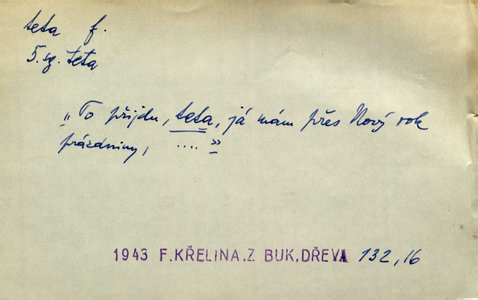 teta f.
5. sg. teta
„To přijdu, teta, já mám přes Nový rok
prázdniny, .... "
1943 F. KŘELINA, Z BUK. DŘEVA 132, 16